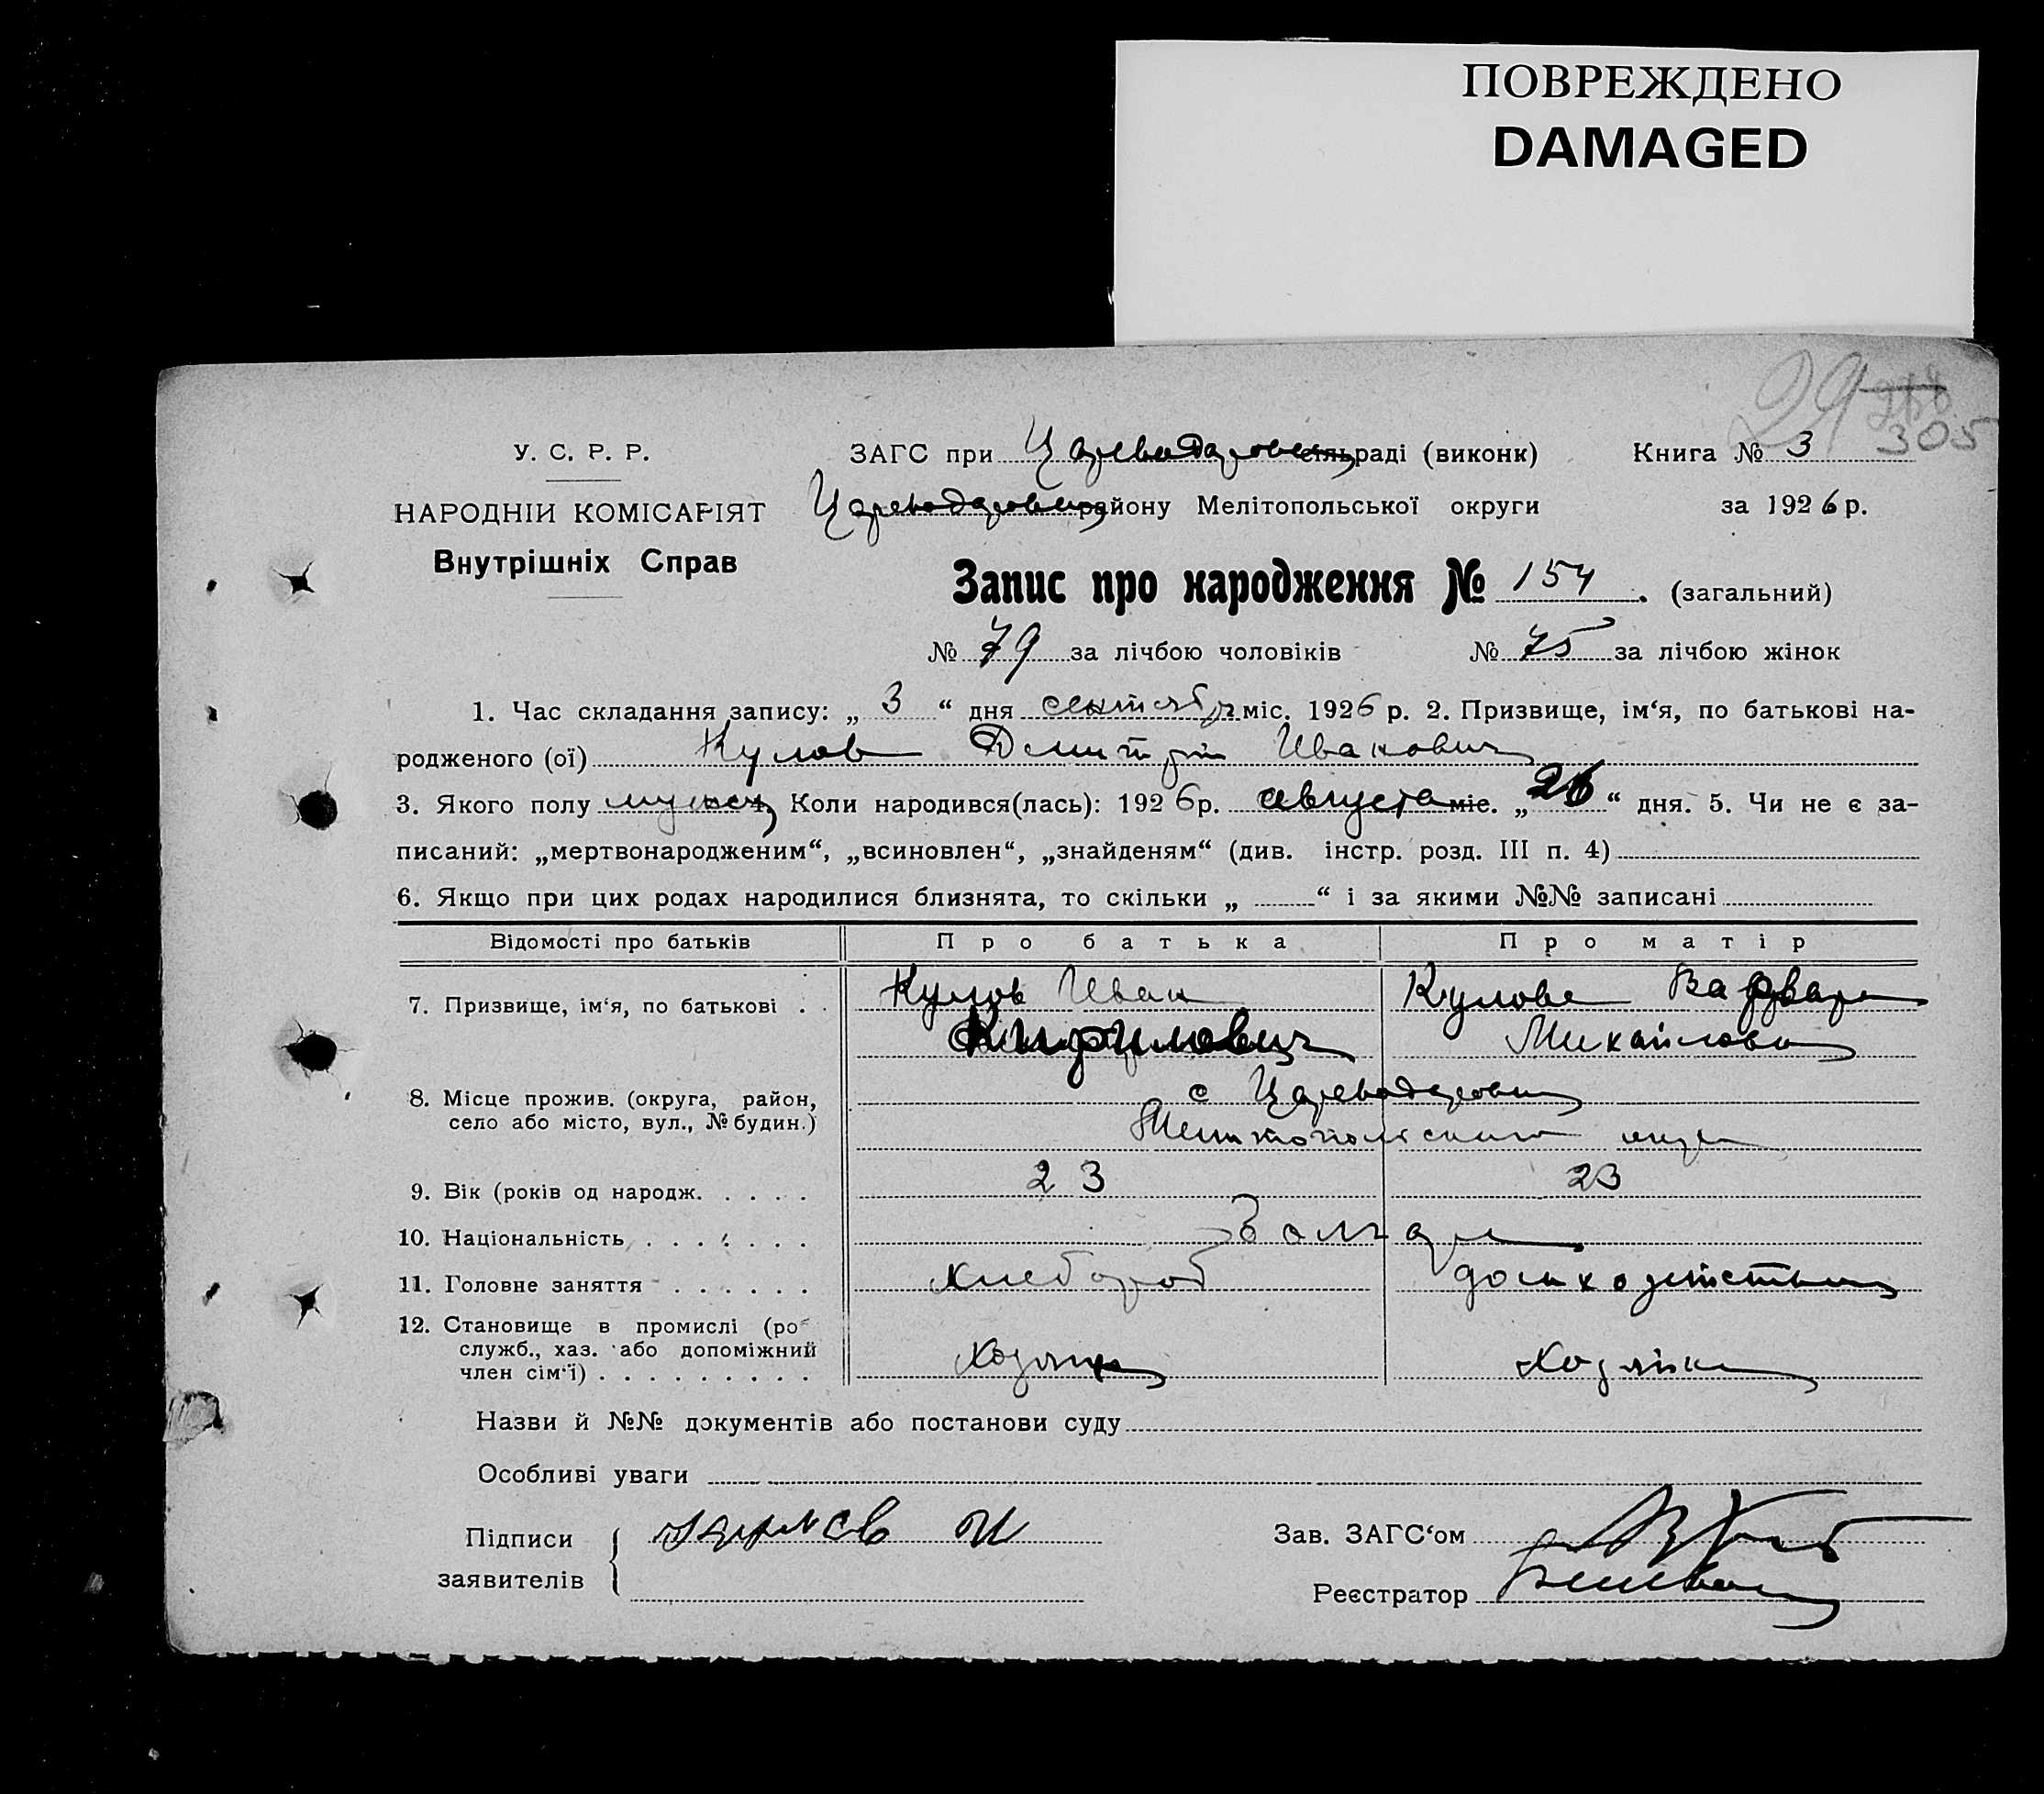 ПОВРЕЖДЕНО
DAMAGED
305
У. С. Р. Р.
ЗАГС при Цареводаровск сільраді (виконк) Книга № 3
НАРОДНІИ КОМІСАРІЯТ
Цареводаровск району Мелітопольської округи за 1926 р.
Внутрішніх Справ
Запис про народження № 154. (загальний)
№ 79 за лічбою чоловіків № 75 за лічбою жінок
1. Час складання запису: „ 3 “ дня сентября міс. 1926 р. 2. Призвище, ім‘я, по батькові на-
родженого (ої) Кулов Дмитрий Иванович
3. Якого полу мужск 4. Коли народився(лась): 1926 р. августа міс. „ 26 “ дня. 5. Чи не є за-
писаний: „мертвонародженим“, „всиновлен“, „знайденям“ (див. інстр. розд. III п. 4)
6. Якщо при цих родах народилися близнята, то скільки „ “ і за якими №№ записані
Відомості про батьків Про батька Про матір
7. Призвище, ім‘я, по батькові . . Кулов Иван Кулова Варвара
Кирилович Михайловна
8. Місце прожив. (округа, район, с Цареводаровка
село або місто, вул., № будин.) Мелитопольского
9. Вік (років од народж. . . . . 23 23
10. Національність . . . . . . . Болгаре
11. Головне заняття . . . . . . хлебороб домхозяйство
12. Становище в промислі (роб
служб., хаз. або допоміжний Хозяин Хозяйка
член сім‘ї) . . . . . . . . .
Назви й №№ документів або постанови суду
Особливі уваги
Підписи И Зав. ЗАГС‘ом
заявителів
Реєстратор